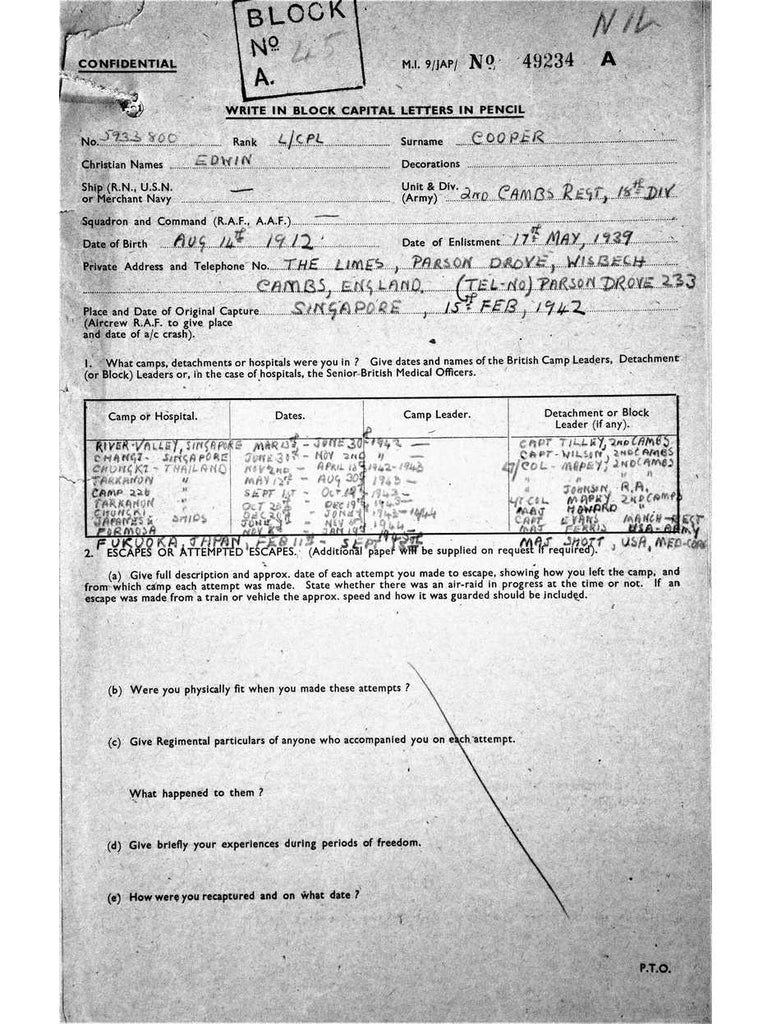 BLOCK
Nº 45
A.
NIL
CONFIDENTIAL
M.I. 9/JAP/ Nº 49234 A
WRITE IN BLOCK CAPITAL LETTERS IN PENCIL
No. 5933800 Rank L/CPL Surname COOPER
Christian Names EDWIN Decorations
Ship (R.N., U.S.N. or Merchant Navy — Unit & Div. (Army) 2ND CAMBS REGT, 18th DIV
Squadron and Command (R.A.F., A.A.F.) —
Date of Birth AUG 14th 1912 Date of Enlistment 17th MAY, 1939
Private Address and Telephone No. THE LIMES, PARSON DROVE, WISBECH
CAMBS, ENGLAND. (TEL-NO) PARSON DROVE 233
Place and Date of Original Capture SINGAPORE, 15th FEB, 1942
(Aircrew R.A.F. to give place
and date of a/c crash).
1. What camps, detachments or hospitals were you in ? Give dates and names of the British Camp Leaders, Detachment
(or Block) Leaders or, in the case of hospitals, the Senior British Medical Officers.
Camp or Hospital. Dates. Camp Leader. Detachment or Block Leader (if any).
RIVER-VALLEY, SINGAPORE - JUNE 30th 1942 — CAPT TILLEY, 2ND CAMBS
CHANGI - SINGAPORE JUNE 30th - NOV 2ND " — CAPT - WILSON, 2ND CAMBS
CHUNGKI - THAILAND NOV 2ND - APRIL 1942-1943 LT/COL - MAPEY, 2ND CAMBS
TARKANON " MAY - AUG 30th 1943 — " "
CAMP 226 SEPT 1st - OCT 1943 — " JOHNSON R.A.
TARKANON " OCT - DEC 19th 1943 — LT COL MAPEY 2ND CAMBS
CHUNGKI " DEC - JUNE 1943-1944 MAJ HOWARD "
JAPANESE SHIPS JUNE - NOV 1944 CAPT EVANS MANCH-REGT
FORMOSA NOV - JAN MAJ FERRIS USA-ARMY
FUKUOKA, JAPAN, FEB 11th - SEPT 1945 MAJ SHOTT, USA, MED-CORP
2. ESCAPES OR ATTEMPTED ESCAPES. (Additional paper will be supplied on request if required).
(a) Give full description and approx. date of each attempt you made to escape, showing how you left the camp, and
from which camp each attempt was made. State whether there was an air-raid in progress at the time or not. If an
escape was made from a train or vehicle the approx. speed and how it was guarded should be included.
(b) Were you physically fit when you made these attempts ?
(c) Give Regimental particulars of anyone who accompanied you on each attempt.
What happened to them ?
(d) Give briefly your experiences during periods of freedom.
(e) How were you recaptured and on what date ?
P.T.O.